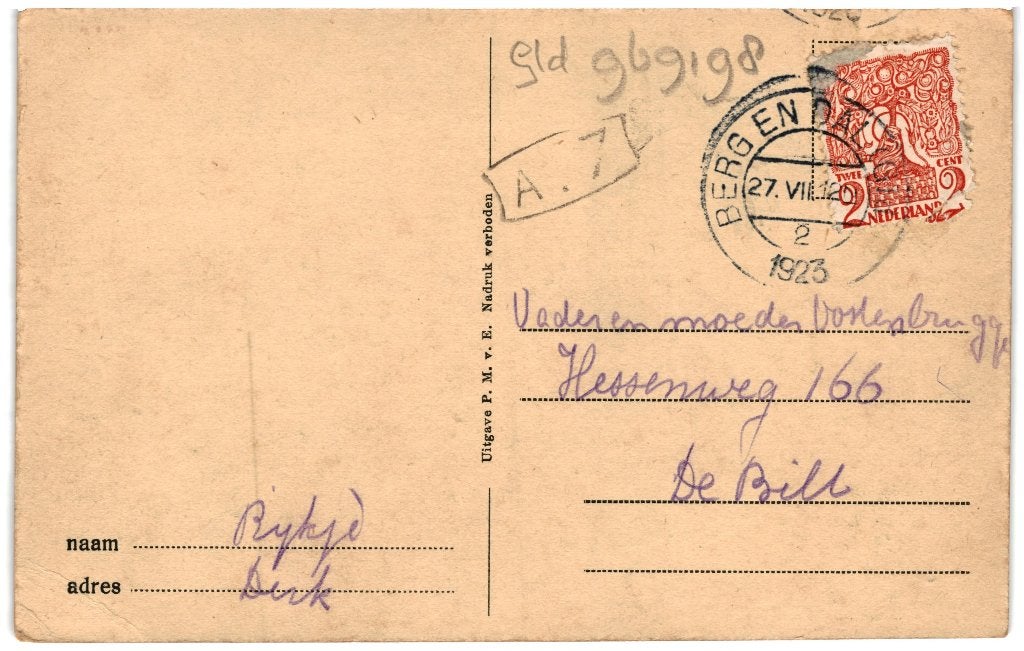 gld 969198
A. 7
BERG EN DAL
27. VII 12
2
1923
TWEE CENT
2 2
NEDERLAND
Uitgave P. M. v. E. Nadruk verboden
Vader en moeder Oostenbrugge
Hessenweg 166
De Bilt
naam Rijkjè
adres Derk